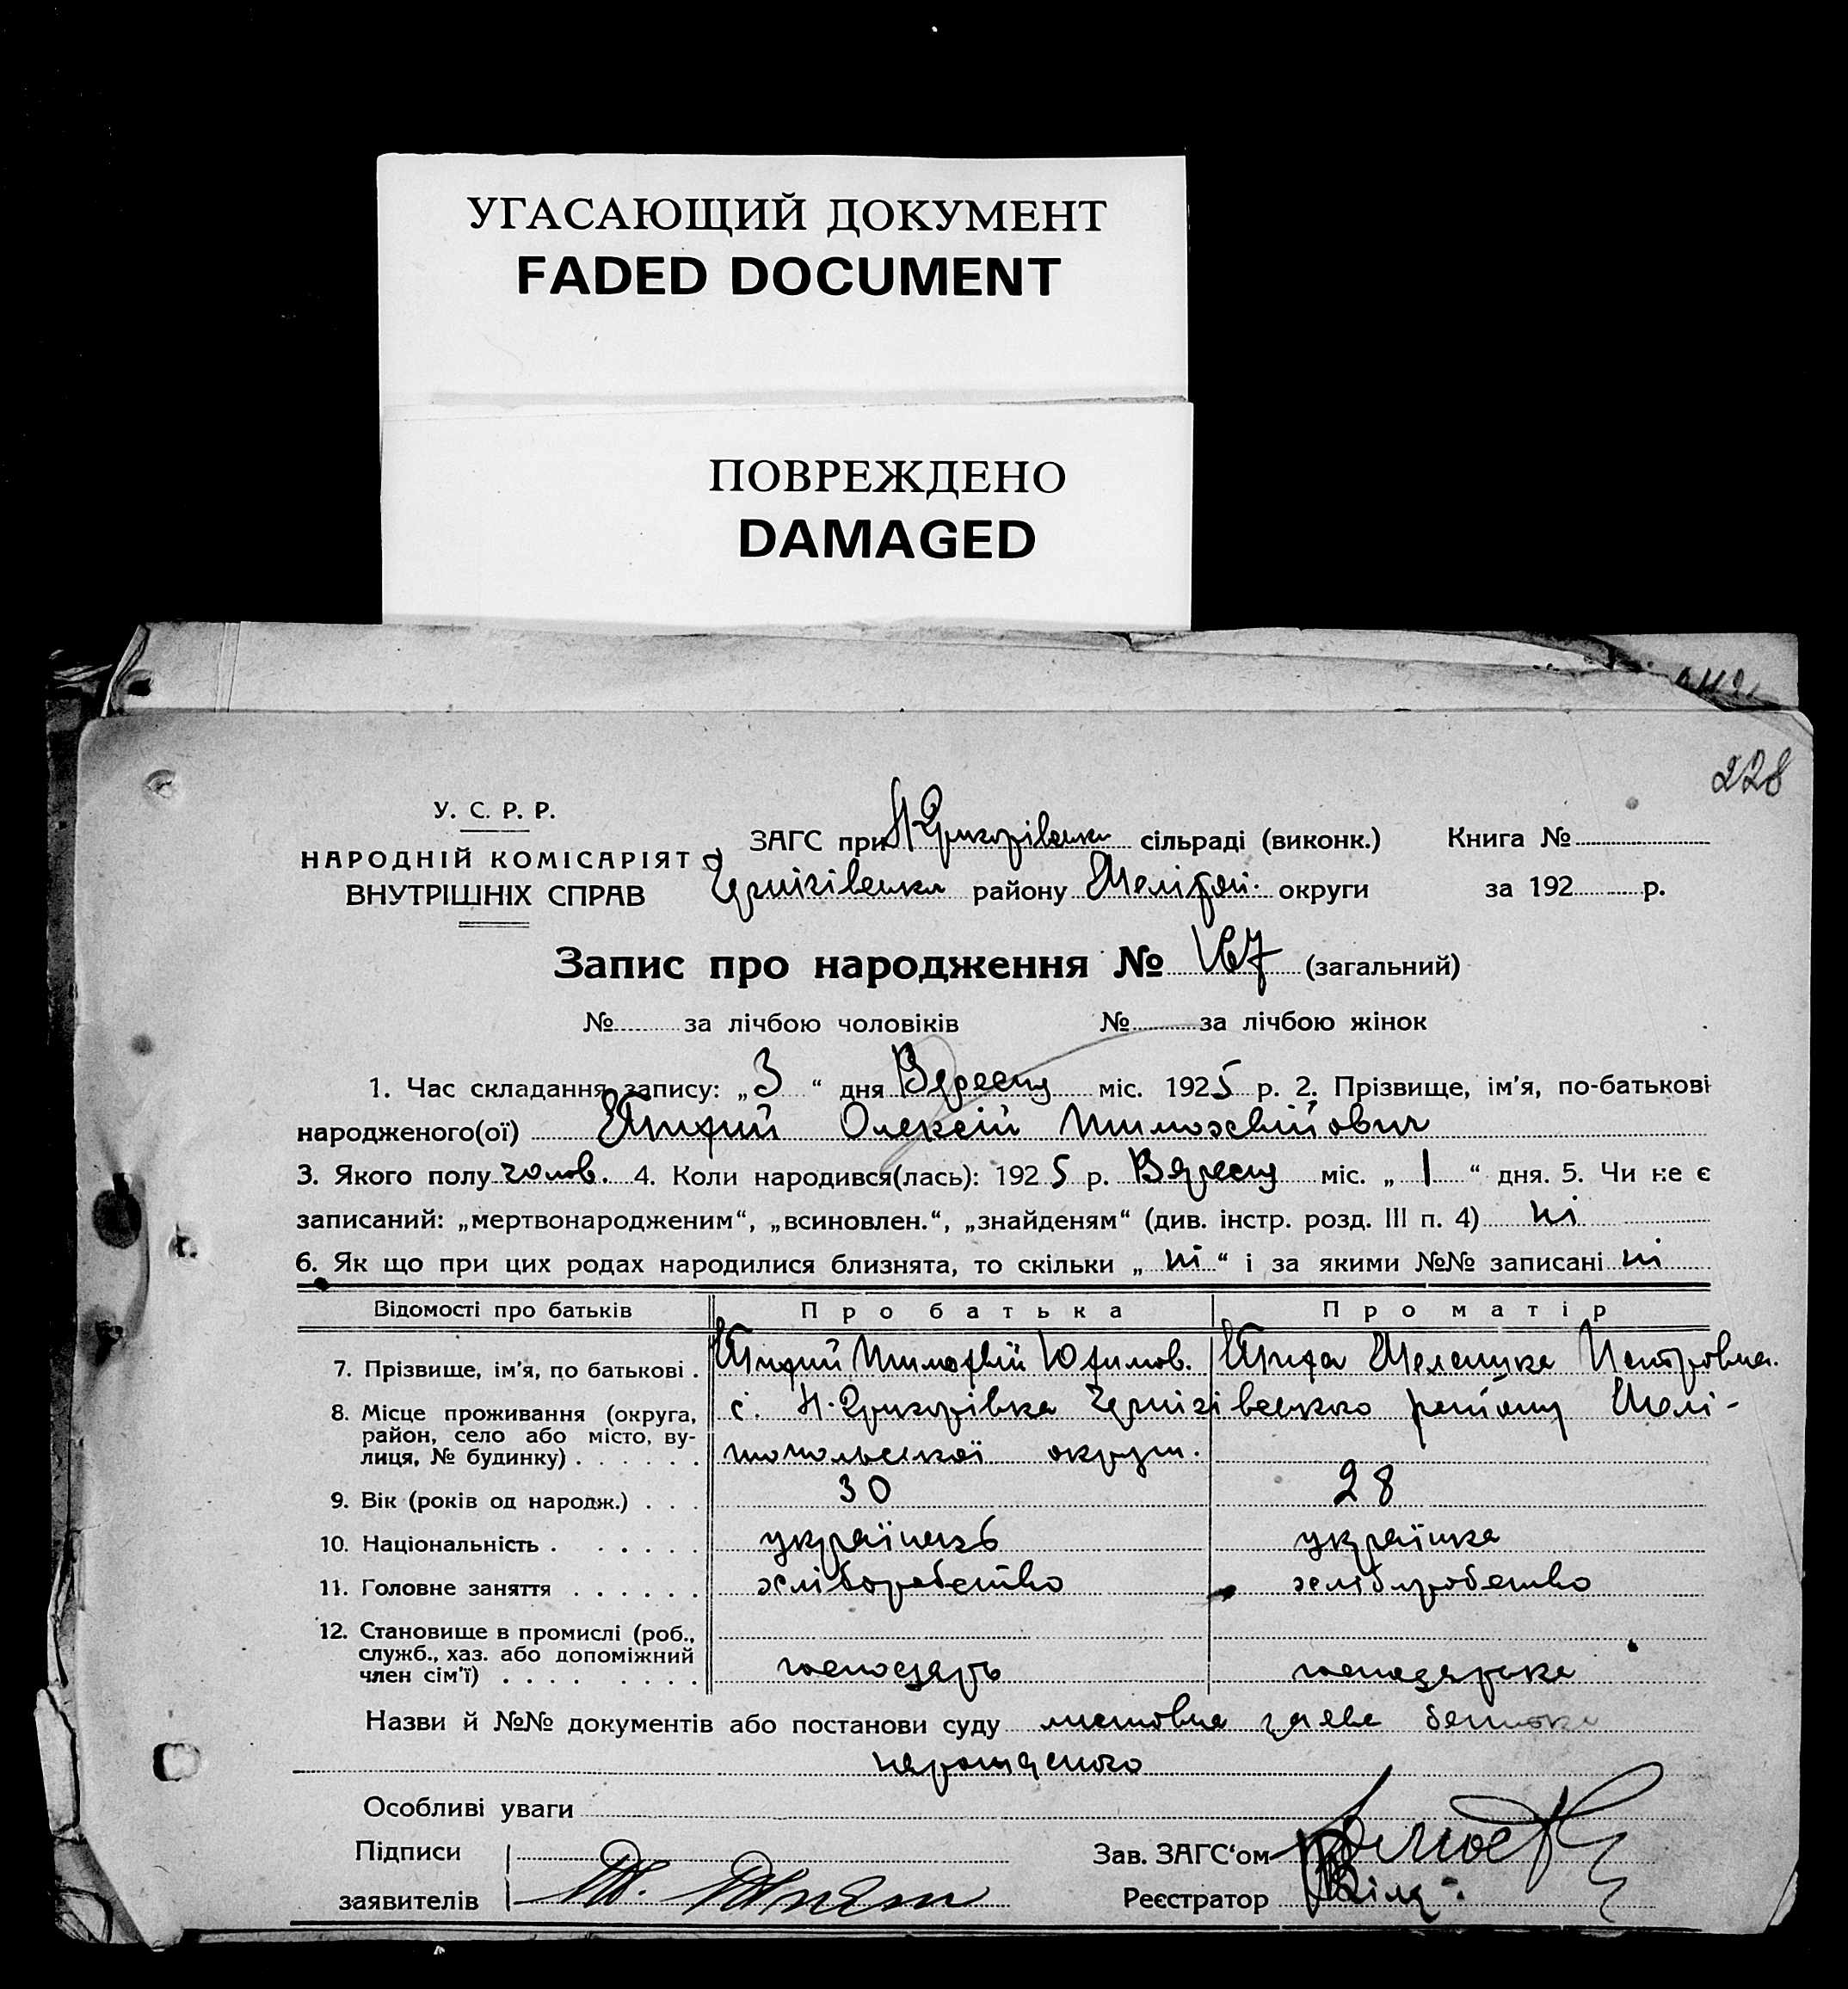 УГАСАЮЩИЙ ДОКУМЕНТ
FADED DOCUMENT
ПОВРЕЖДЕНО
DAMAGED
228
У. С. Р. Р.
НАРОДНІЙ КОМІСАРІЯТ
ВНУТРІШНІХ СПРАВ
ЗАГС при Н Григорівськ сільраді (виконк.) Книга №
Чернігівськ району Меліт округи за 192 р.
Запис про народження № 167 (загальний)
№ за лічбою чоловіків № за лічбою жінок
1. Час складання запису: „ 3 “ дня Вересня міс. 1925 р. 2. Прізвище, ім'я, по-батькові
народженого(ої) Олексій Тимохвійович
3. Якого полу чолов. 4. Коли народився(лась): 1925 р. Вересня міс. „ 1 “ дня. 5. Чи не є
записаний: „мертвонародженим“, „всиновлен.“, „знайденям“ (див. інстр. розд. III п. 4) ні
6. Як що при цих родах народилися близнята, то скільки „ ні “ і за якими №№ записані ні
Відомості про батьків Про батька Про матір
7. Прізвище, ім'я, по батькові . Тимофій Юхимов. Меланка Петровна.
8. Місце проживання (округа, район, село або місто, вулиця, № будинку) . . . . . . с. Н. Григорівка Чернігівського району Мелі-
топольської округи.
9. Вік (років од народж.) . . . 30 28
10. Національність . . . . . . українець українка
11. Головне заняття . . . . . . хліборобство хліборобство
12. Становище в промислі (роб., служб., хаз. або допоміжний член сім'ї) . . . . . . . . господарь господарька
Назви й №№ документів або постанови суду заява батька
народженого
Особливі уваги
Підписи
заявителів
Зав. ЗАГС'ом
Реєстратор